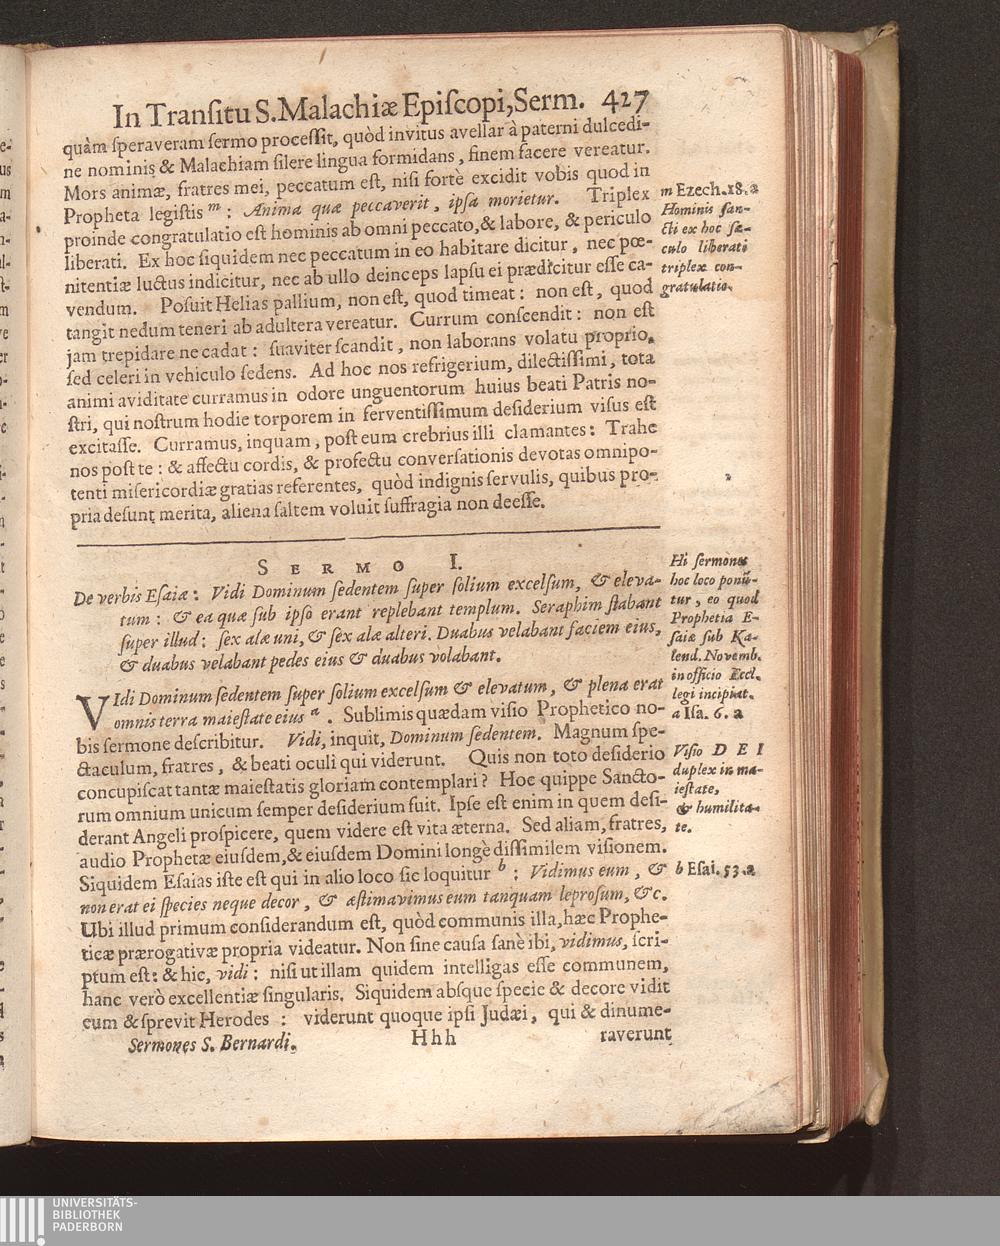 In Transitu S. Malachiæ Episcopi, Serm. 427
quàm speraveram sermo processit, quòd invitus avellar à paterni dulcedi-
ne nominis & Malachiam silere lingua formidans, finem facere vereatur.
Mors animæ, fratres mei, peccatum est, nisi fortè excidit vobis quod in
Propheta legistis m : Anima quæ peccaverit, ipsa morietur. Triplex
proinde congratulatio est hominis ab omni peccato, & labore, & periculo
liberati. Ex hoc siquidem nec peccatum in eo habitare dicitur, nec pœ-
nitentiæ luctus indicitur, nec ab ullo deinceps lapsu ei prædicitur esse ca-
vendum. Posuit Helias pallium, non est, quod timeat: non est, quod
tangit nedum teneri ab adultera vereatur. Currum conscendit: non est
jam trepidare ne cadat: suaviter scandit, non laborans volatu proprio,
sed celeri in vehiculo sedens. Ad hoc nos refrigerium, dilectissimi, tota
animi aviditate curramus in odore unguentorum huius beati Patris no-
stri, qui nostrum hodie torporem in ferventissimum desiderium visus est
excitasse. Curramus, inquam, post eum crebrius illi clamantes: Trahe
nos post te: & affectu cordis, & profectu conversationis devotas omnipo-
tenti misericordiæ gratias referentes, quòd indignis servulis, quibus pro-
pria desunt merita, aliena saltem voluit suffragia non deesse.
m Ezech. 18. a
Hominis san-
cti ex hoc sæ-
culo liberati
triplex con-
gratulatio.
SERMO I.
De verbis Esaiæ: Vidi Dominum sedentem super solium excelsum, & eleva-
tum: & ea quæ sub ipso erant replebant templum. Seraphim stabant
super illud: sex alæ uni, & sex alæ alteri. Duabus velabant faciem eius,
& duabus velabant pedes eius & duabus volabant.
Hi sermones
hoc loco ponũ-
tur, eo quod
Prophetia E-
saiæ sub Ka-
lend. Novemb.
in officio Eccl.
legi incipiat.
a Isa. 6. a
VIdi Dominum sedentem super solium excelsum & elevatum, & plena erat
omnis terra maiestate eius a. Sublimis quædam visio Prophetico no-
bis sermone describitur. Vidi, inquit, Dominum sedentem. Magnum spe-
ctaculum, fratres, & beati oculi qui viderunt. Quis non toto desiderio
concupiscat tantæ maiestatis gloriam contemplari? Hoc quippe Sancto-
rum omnium unicum semper desiderium fuit. Ipse est enim in quem desi-
derant Angeli prospicere, quem videre est vita æterna. Sed aliam, fratres,
audio Prophetæ eiusdem, & eiusdem Domini longè dissimilem visionem.
Siquidem Esaias iste est qui in alio loco sic loquitur b : Vidimus eum, &
non erat ei species neque decor, & æstimavimus eum tanquam leprosum, &c.
Ubi illud primum considerandum est, quòd communis illa, hæc Prophe-
ticæ prærogativæ propria videatur. Non sine causa sanè ibi, vidimus, scri-
ptum est: & hic, vidi: nisi ut illam quidem intelligas esse communem,
hanc verò excellentiæ singularis. Siquidem absque specie & decore vidit
eum & sprevit Herodes: viderunt quoque ipsi Judæi, qui & dinume-
Visio DEI
duplex in ma-
iestate,
& humilita-
te.
b Esai. 53. a
Sermones S. Bernardi. Hhh raverunt
UNIVERSITÄTS-
BIBLIOTHEK
PADERBORN